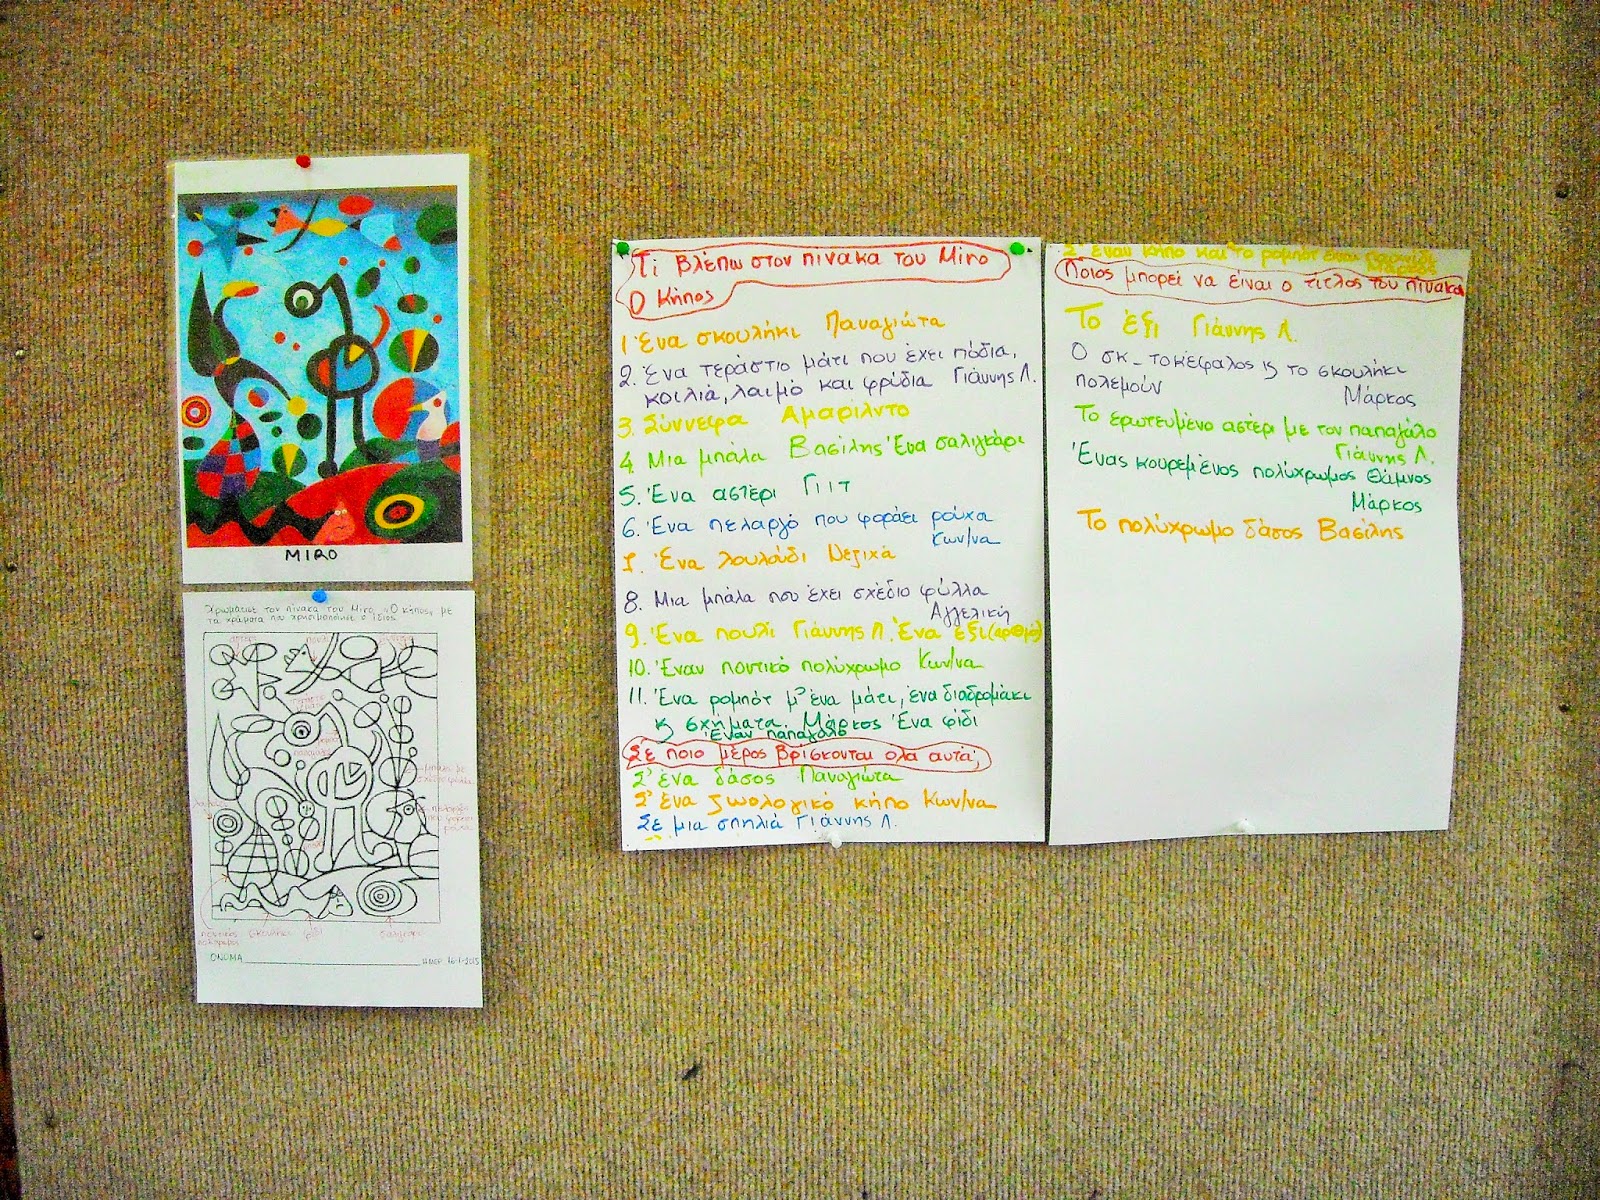 MIRO
Χρωματισε τον πίνακα του Miro, «Ο κήπος» με
τα χρώματα που χρησιμοποίησε ο ίδιος
αστέρι
σαλιγκάρι
σκουλήκι φίδι
ΟΝΟΜΑ
Τί βλέπω στον πίνακα του Miro
Ο Κήπος
1 Ένα σκουλήκι Παναγιώτα
2. Ένα τεράστιο μάτι που έχει πόδια,
κοιλιά, λαιμό και φρύδια Γιάννης Λ.
3. Σύννεφα Αμαρίλντο
4. Μια μπάλα Βασίλης Ένα σαλιγκάρι
5. Ένα αστέρι
6. Ένα πελαργό που φοράει ρούχα
Κων/να
7. Ένα λουλούδι
8. Μια μπάλα που έχει σχέδιο φύλλα
Αγγελική
9. Ένα πουλί Γιάννης Λ. Ένα έξι (αριθμό)
10. Έναν ποντικό πολύχρωμο Κων/να
11. Ένα ρομπότ μ' ένα μάτι, ένα διαδρομάκι
ϗ σχήματα. Μάρκος Ένα φίδι
Έναν παπαγάλο
Σε ποιο μέρος βρίσκονται όλα αυτά;
Σ' ένα δάσος Παναγιώτα
Σ' ένα ζωολογικό κήπο Κων/να
Σε μια σπηλιά Γιάννης Λ.
Σ' έναν κήπο και το ρομπότ είναι
Ποιος μπορεί να είναι ο τίτλος του πίνακα
Το έξι Γιάννης Λ.
Ο ϗ το σκουλήκι
πολεμούν Μάρκος
Το ερωτευμένο αστέρι με τον παπαγάλο
Γιάννης Λ.
Ένας κουρεμένος πολύχρωμος θάμνος
Μάρκος
Το πολύχρωμο δάσος Βασίλης